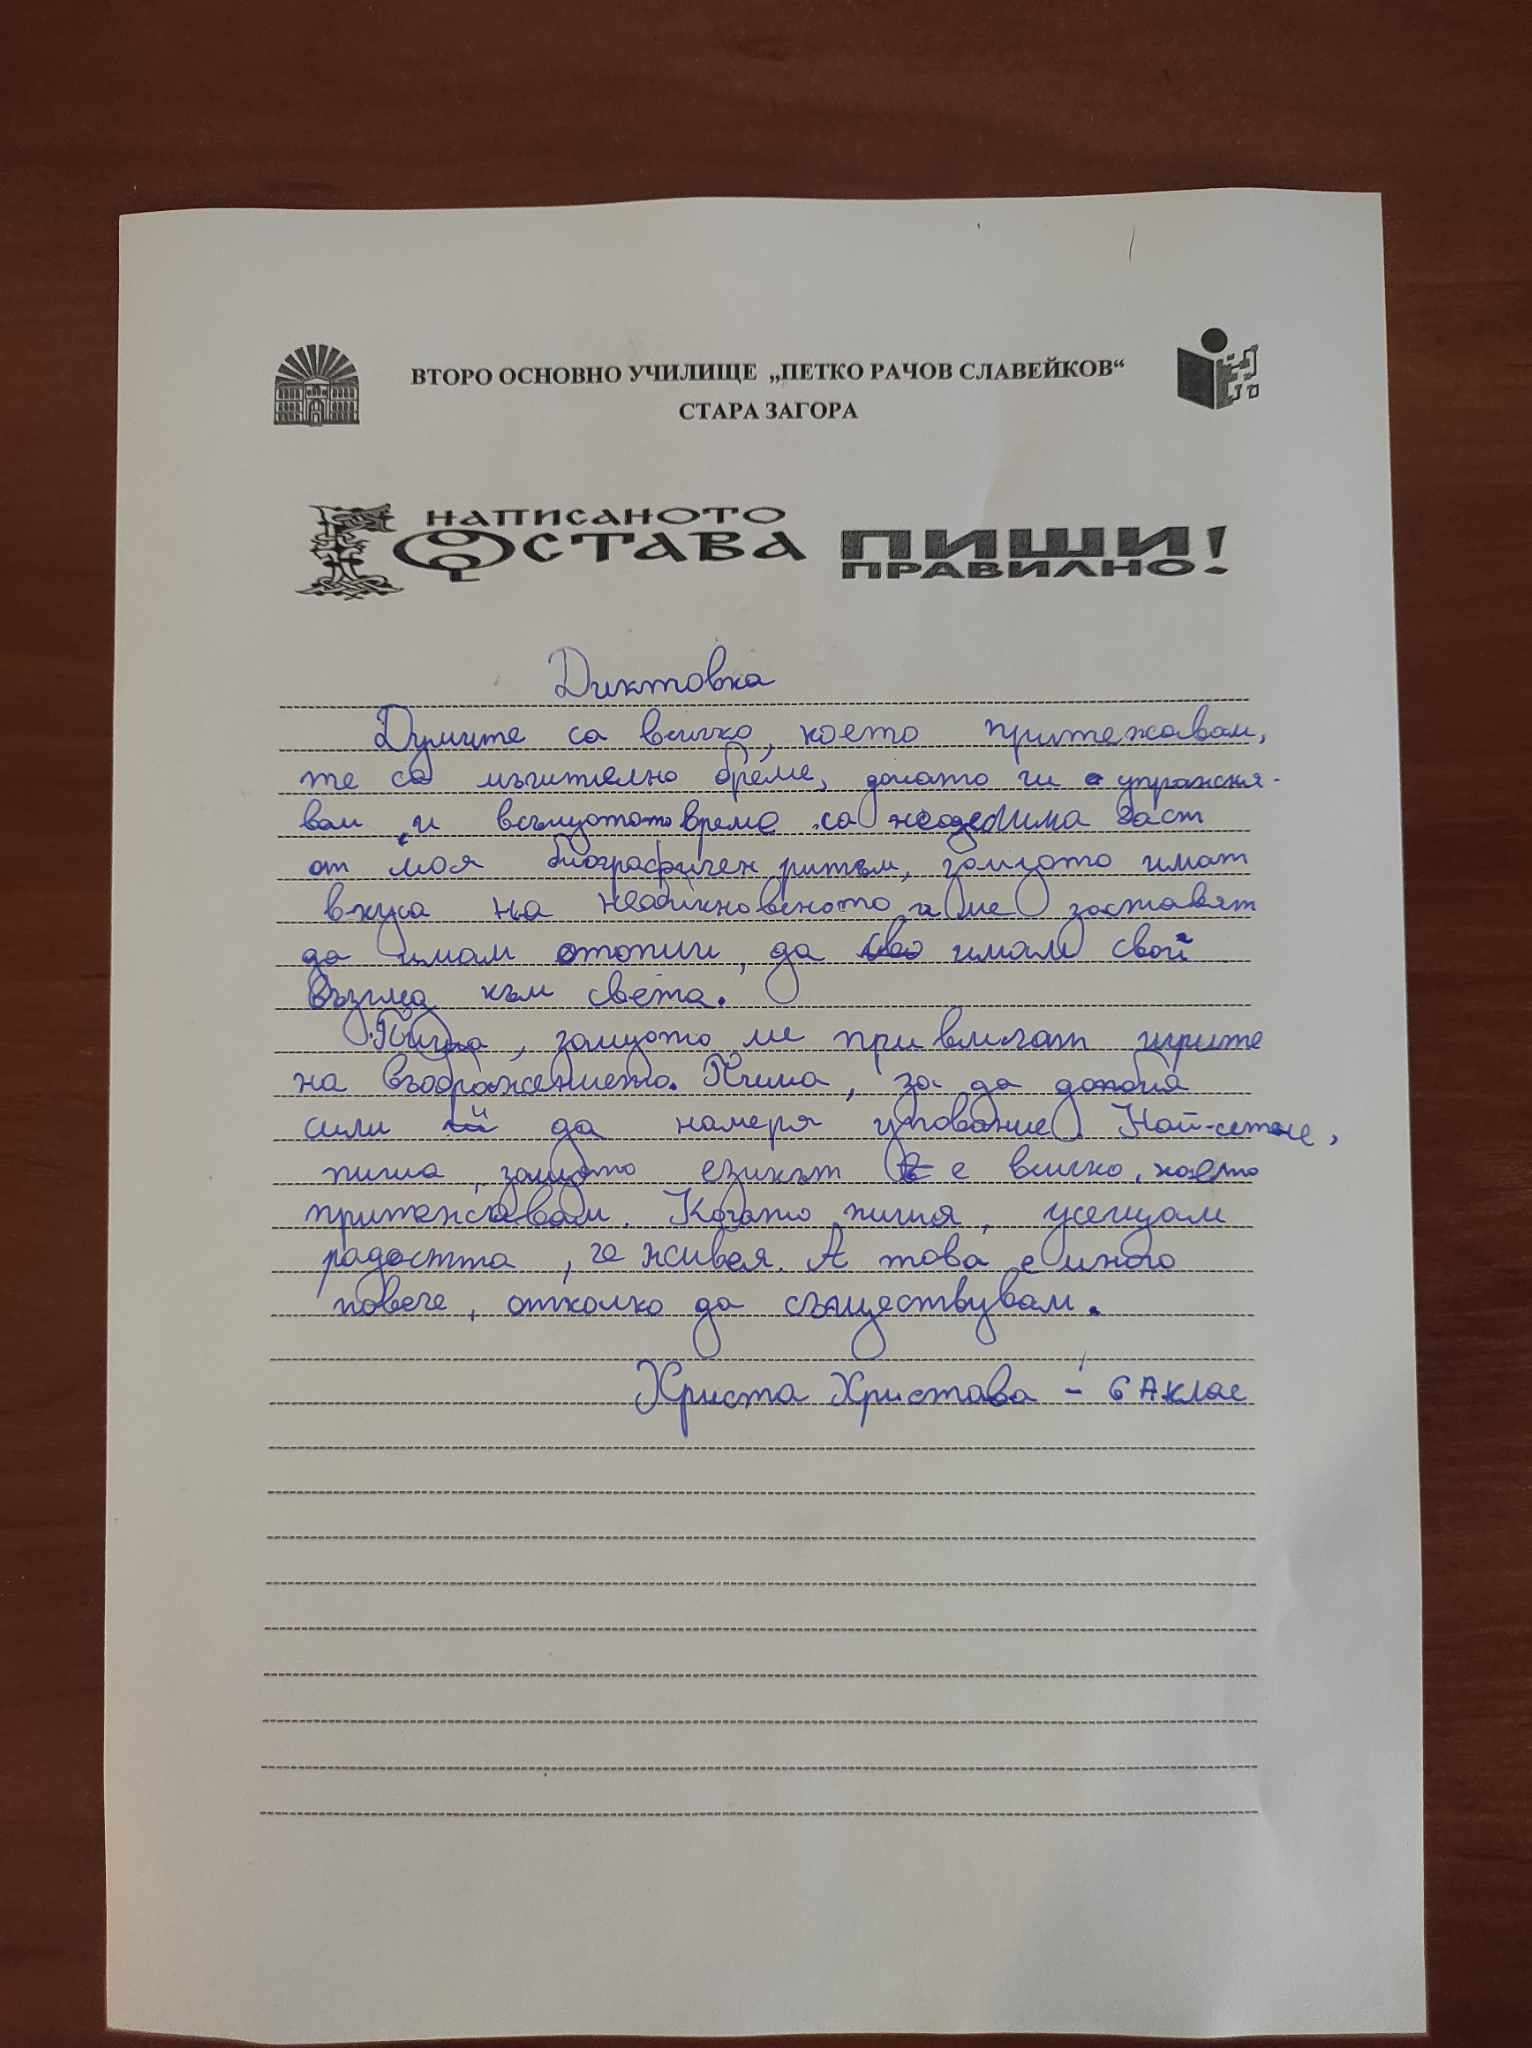 ВТОРО ОСНОВНО УЧИЛИЩЕ „ПЕТКО РАЧОВ СЛАВЕЙКОВ“
СТАРА ЗАГОРА
НАПИСАНОТО
ОСТАВА
ПИШИ
ПРАВИЛНО!
Диктовка
Думите са всичко, което притежавам,
те са мъчително бреме, докато ги упражня-
вам и същото време са неоделима част
от моя биографичен ритъм, защото имат
вкуса на необикновеното и ме заставят
да имам отопии, да имам свой
възглед към света.
Пиша, защото ме привличат игрите
на въображението. Пиша, за да добия
сили да намеря упование. Най-сетне,
пиша, защото езикът е всичко, което
притежавам. Когато пиша, усещам
радостта, че живея. А това е много
повече, отколко да съществувам.
Христа Христава - 6 А клас